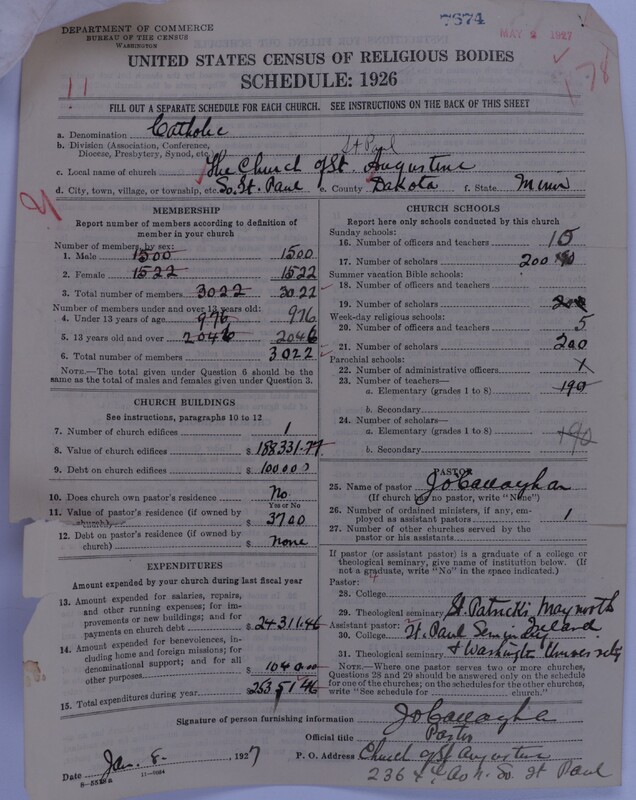 DEPARTMENT OF COMMERCE
BUREAU OF THE CENSUS
WASHINGTON
7674
MAY 2 1927
178
11
UNITED STATES CENSUS OF RELIGIOUS BODIES
SCHEDULE: 1926
FILL OUT A SEPARATE SCHEDULE FOR EACH CHURCH. SEE INSTRUCTIONS ON THE BACK OF THIS SHEET
a. Denomination Catholic
b. Division (Association, Conference, Diocese, Presbytery, Synod, etc.) St Paul
c. Local name of church The Church of St. Augustine
d. City, town, village, or township, etc. So. St. Paul e. County Dakota f. State Minn
MEMBERSHIP
Report number of members according to definition of member in your church
Number of members, by sex:
1. Male 1500 1500
2. Female 1522 1522
3. Total number of members 3022 3022
Number of members under and over 13 years old:
4. Under 13 years of age 976 976
5. 13 years old and over 2046 2046
6. Total number of members 3022
NOTE.—The total given under Question 6 should be the same as the total of males and females given under Question 3.
CHURCH BUILDINGS
See instructions, paragraphs 10 to 12
7. Number of church edifices 1
8. Value of church edifices $ 188331.77
9. Debt on church edifices $ 100000
10. Does church own pastor's residence No
Yes or No
11. Value of pastor's residence (if owned by church) $ 3700
12. Debt on pastor's residence (if owned by church) $ none
EXPENDITURES
Amount expended by church during last fiscal year
13. Amount expended for salaries, repairs, and other running expenses; for improvements or new buildings; and for payments on church debt $ 24311.46
14. Amount expended for benevolences, including home and foreign missions; for denominational support; and for all other purposes $ 1040.00
15. Total expenditures during year $ 25351.46
CHURCH SCHOOLS
Report here only schools conducted by this church
Sunday schools:
16. Number of officers and teachers 15
17. Number of scholars 200
Summer vacation Bible schools:
18. Number of officers and teachers
19. Number of scholars 200
Week-day religious schools:
20. Number of officers and teachers 5
21. Number of scholars 200
Parochial schools:
22. Number of administrative officers
23. Number of teachers—
a. Elementary (grades 1 to 8) 190
b. Secondary
24. Number of scholars—
a. Elementary (grades 1 to 8) 190
b. Secondary
PASTOR
25. Name of pastor J O'Callaghan
(If church has no pastor, write "None")
26. Number of ordained ministers, if any, employed as assistant pastors 1
27. Number of other churches served by the pastor or his assistants
If pastor (or assistant pastor) is a graduate of a college or theological seminary, give name of institution below. (If not a graduate, write "No" in the space indicated.)
Pastor:
28. College
29. Theological seminary St. Patricks, Maynooth
Ireland
Assistant pastor:
30. College St. Paul Seminary
31. Theological seminary & Washington University
NOTE.—Where one pastor serves two or more churches, Questions 28 and 29 should be answered only on the schedule for one of the churches; on the schedules for the other churches, write "See schedule for church."
Signature of person furnishing information J O'Callaghan
Official title Pastor
Date Jan. 8. , 1927
P. O. Address Church of St Augustine
So. St Paul
8-5528a
11-9094